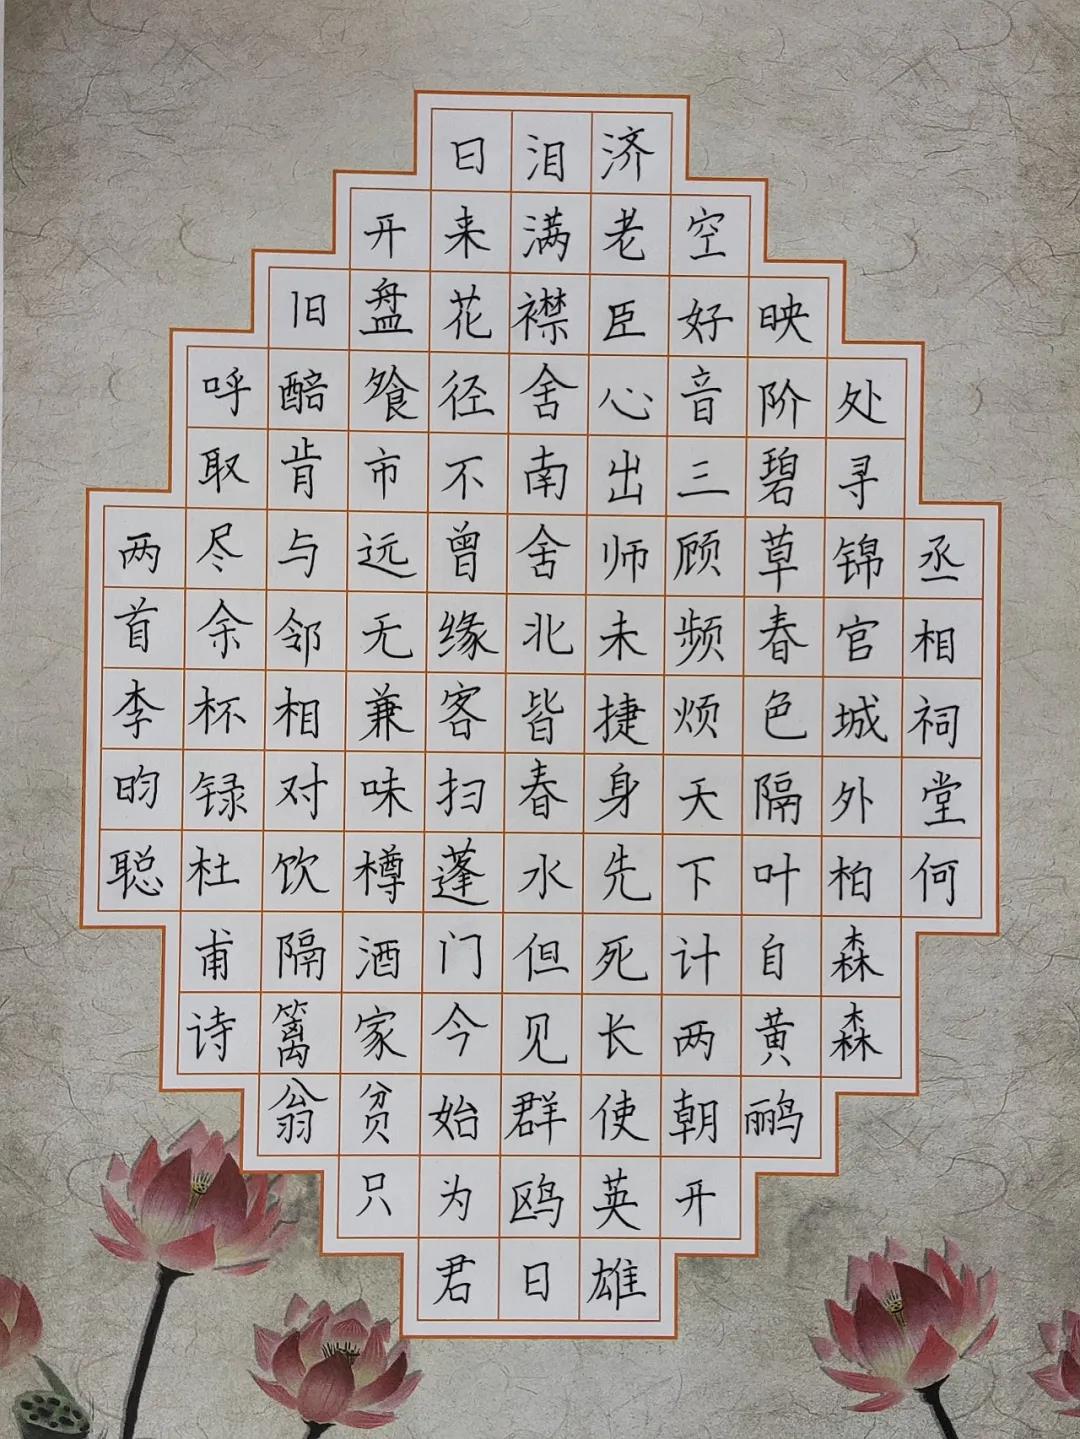 丞相祠堂何
处寻锦官城外柏森森
映阶碧草春色隔叶自黄鹂
空好音三顾频烦天下计两朝开
济老臣心出师未捷身先死长使英雄
泪满襟舍南舍北皆春水但见群鸥日
日来花径不曾缘客扫蓬门今始为君
开盘飱市远无兼味樽酒家贫只
旧醅肯与邻相对饮隔篱翁
呼取尽余杯録杜甫诗
两首李昀聪